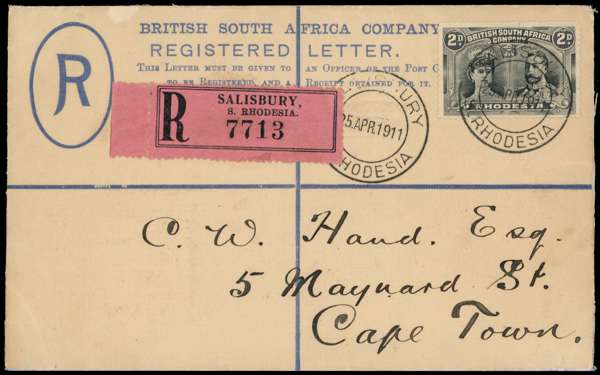 BRITISH SOUTH AFRICA COMPANY
REGISTERED LETTER.
THIS LETTER MUST BE GIVEN TO AN OFFICER OF THE POST
TO BE REGISTERED, AND A RECEIPT OBTAINED FOR IT.
R
R
SALISBURY,
S. RHODESIA.
7713
25.APR.1911
RHODESIA
2D BRITISH SOUTH AFRICA 2D
COMPANY
RHODESIA
RHODESIA
C. W. Hand. Esq.
5 Maynard St.
Cape Town.